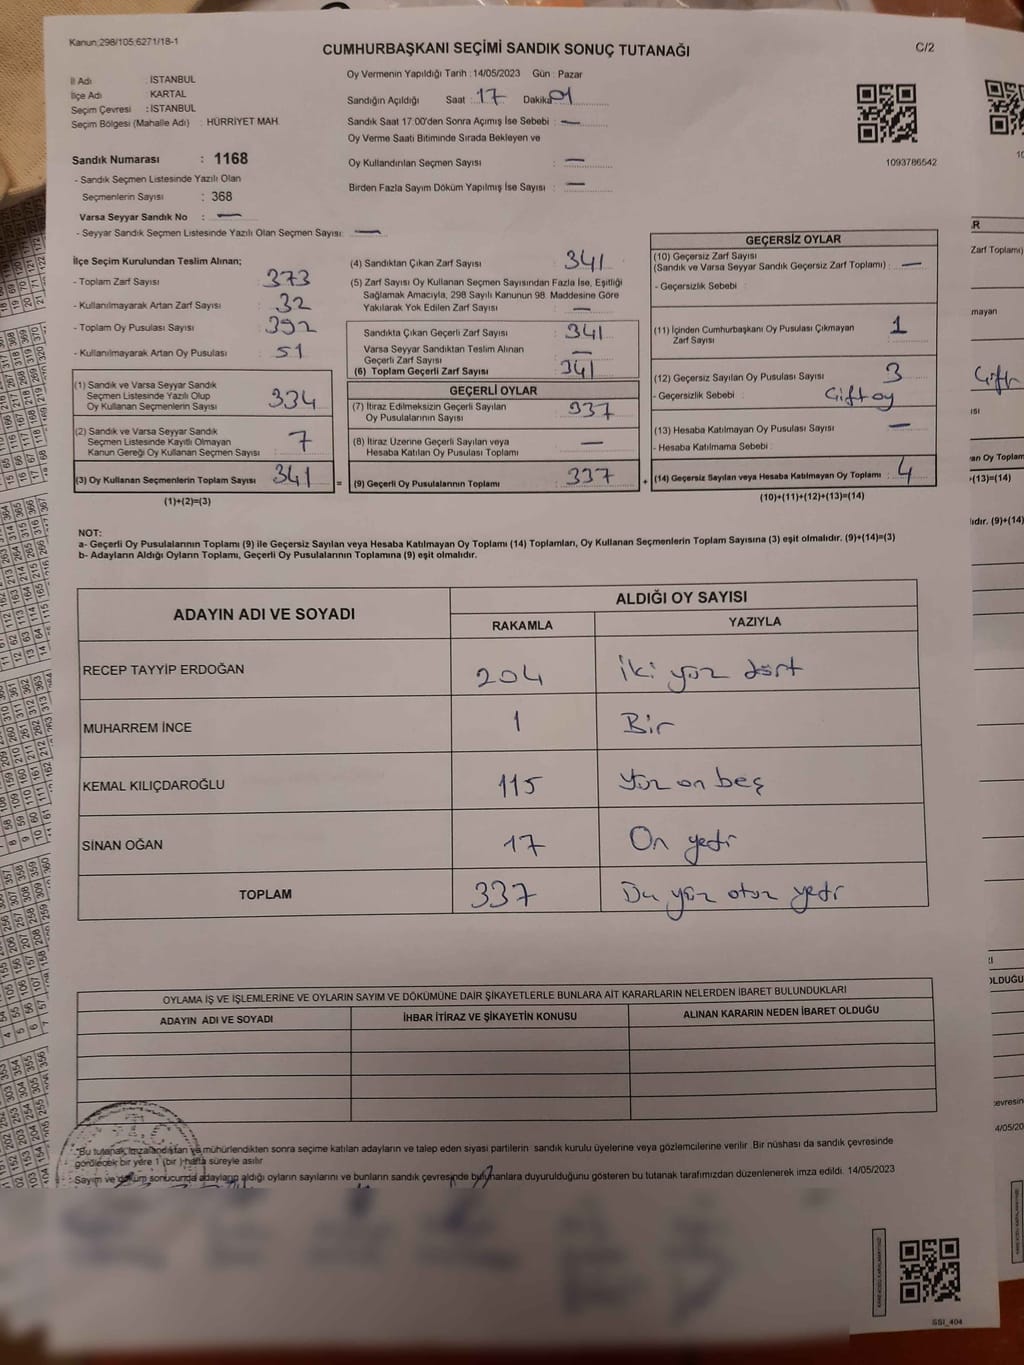 Kanun:298/105,6271/18-1
CUMHURBAŞKANI SEÇİMİ SANDIK SONUÇ TUTANAĞI
C/2
İl Adı : İSTANBUL
İlçe Adı : KARTAL
Seçim Çevresi : İSTANBUL
Seçim Bölgesi (Mahalle Adı) : HÜRRİYET MAH.
Sandık Numarası : 1168
- Sandık Seçmen Listesinde Yazılı Olan
Seçmenlerin Sayısı : 368
Varsa Seyyar Sandık No : —
- Seyyar Sandık Seçmen Listesinde Yazılı Olan Seçmen Sayısı: —
Oy Vermenin Yapıldığı Tarih :14/05/2023 Gün : Pazar
Sandığın Açıldığı Saat : 17 Dakika 01
Sandık Saat 17:00'den Sonra Açımış İse Sebebi : —
Oy Verme Saati Bitiminde Sırada Bekleyen ve
Oy Kullandırılan Seçmen Sayısı : —
Birden Fazla Sayım Döküm Yapılmış İse Sayısı : —
1093786542
İlçe Seçim Kurulundan Teslim Alınan;
- Toplam Zarf Sayısı : 373
- Kullanılmayarak Artan Zarf Sayısı : 32
- Toplam Oy Pusulası Sayısı : 392
- Kullanılmayarak Artan Oy Pusulası : 51
(1) Sandık ve Varsa Seyyar Sandık
Seçmen Listesinde Yazılı Olup
Oy Kullanan Seçmenlerin Sayısı : 334
(2) Sandık ve Varsa Seyyar Sandık
Seçmen Listesinde Kayıtlı Olmayan
Kanun Gereği Oy Kullanan Seçmen Sayısı : 7
(3) Oy Kullanan Seçmenlerin Toplam Sayısı : 341
(1)+(2)=(3)
(4) Sandıktan Çıkan Zarf Sayısı : 341
(5) Zarf Sayısı Oy Kullanan Seçmen Sayısından Fazla İse, Eşitliği
Sağlamak Amacıyla, 298 Sayılı Kanunun 98. Maddesine Göre
Yakılarak Yok Edilen Zarf Sayısı : —
Sandıkta Çıkan Geçerli Zarf Sayısı : 341
Varsa Seyyar Sandıktan Teslim Alınan
Geçerli Zarf Sayısı : —
(6) Toplam Geçerli Zarf Sayısı : 341
GEÇERLİ OYLAR
(7) İtiraz Edilmeksizin Geçerli Sayılan
Oy Pusulalarının Sayısı : 337
(8) İtiraz Üzerine Geçerli Sayılan veya
Hesaba Katılan Oy Pusulası Toplamı : —
= (9) Geçerli Oy Pusulalarının Toplamı : 337
GEÇERSİZ OYLAR
(10) Geçersiz Zarf Sayısı
(Sandık ve Varsa Seyyar Sandık Geçersiz Zarf Toplamı) : —
- Geçersizlik Sebebi :
(11) İçinden Cumhurbaşkanı Oy Pusulası Çıkmayan
Zarf Sayısı : 1
(12) Geçersiz Sayılan Oy Pusulası Sayısı : 3
- Geçersizlik Sebebi : Çift oy
(13) Hesaba Katılmayan Oy Pusulası Sayısı : —
- Hesaba Katılmama Sebebi :
+ (14) Geçersiz Sayılan veya Hesaba Katılmayan Oy Toplamı : 4
(10)+(11)+(12)+(13)=(14)
NOT:
a- Geçerli Oy Pusulalarının Toplamı (9) ile Geçersiz Sayılan veya Hesaba Katılmayan Oy Toplamı (14) Toplamları, Oy Kullanan Seçmenlerin Toplam Sayısına (3) eşit olmalıdır. (9)+(14)=(3)
b- Adayların Aldığı Oyların Toplamı, Geçerli Oy Pusulalarının Toplamına (9) eşit olmalıdır.
ADAYIN ADI VE SOYADI
ALDIĞI OY SAYISI
RAKAMLA YAZIYLA
RECEP TAYYİP ERDOĞAN 204 İki yüz dört
MUHARREM İNCE 1 Bir
KEMAL KILIÇDAROĞLU 115 Yüz on beş
SİNAN OĞAN 17 On yedi
TOPLAM 337 Üç yüz otuz yedi
OYLAMA İŞ VE İŞLEMLERİNE VE OYLARIN SAYIM VE DÖKÜMÜNE DAİR ŞİKAYETLERLE BUNLARA AİT KARARLARIN NELERDEN İBARET BULUNDUKLARI
ADAYIN ADI VE SOYADI İHBAR İTİRAZ VE ŞİKAYETİN KONUSU ALINAN KARARIN NEDEN İBARET OLDUĞU
"Bu tutanak,imzalandıktan ve mühürlendikten sonra seçime katılan adayların ve talep eden siyasi partilerin sandık kurulu üyelerine veya gözlemcilerine verilir .Bir nüshası da sandık çevresinde
görülecek bir yere 1 (bir ) hafta süreyle asılır.
Sayım ve döküm sonucunda adayların aldığı oyların sayılarını ve bunların sandık çevresinde bulunanlara duyurulduğunu gösteren bu tutanak tarafımızdan düzenlenerek imza edildi. 14/05/2023
SSI_404